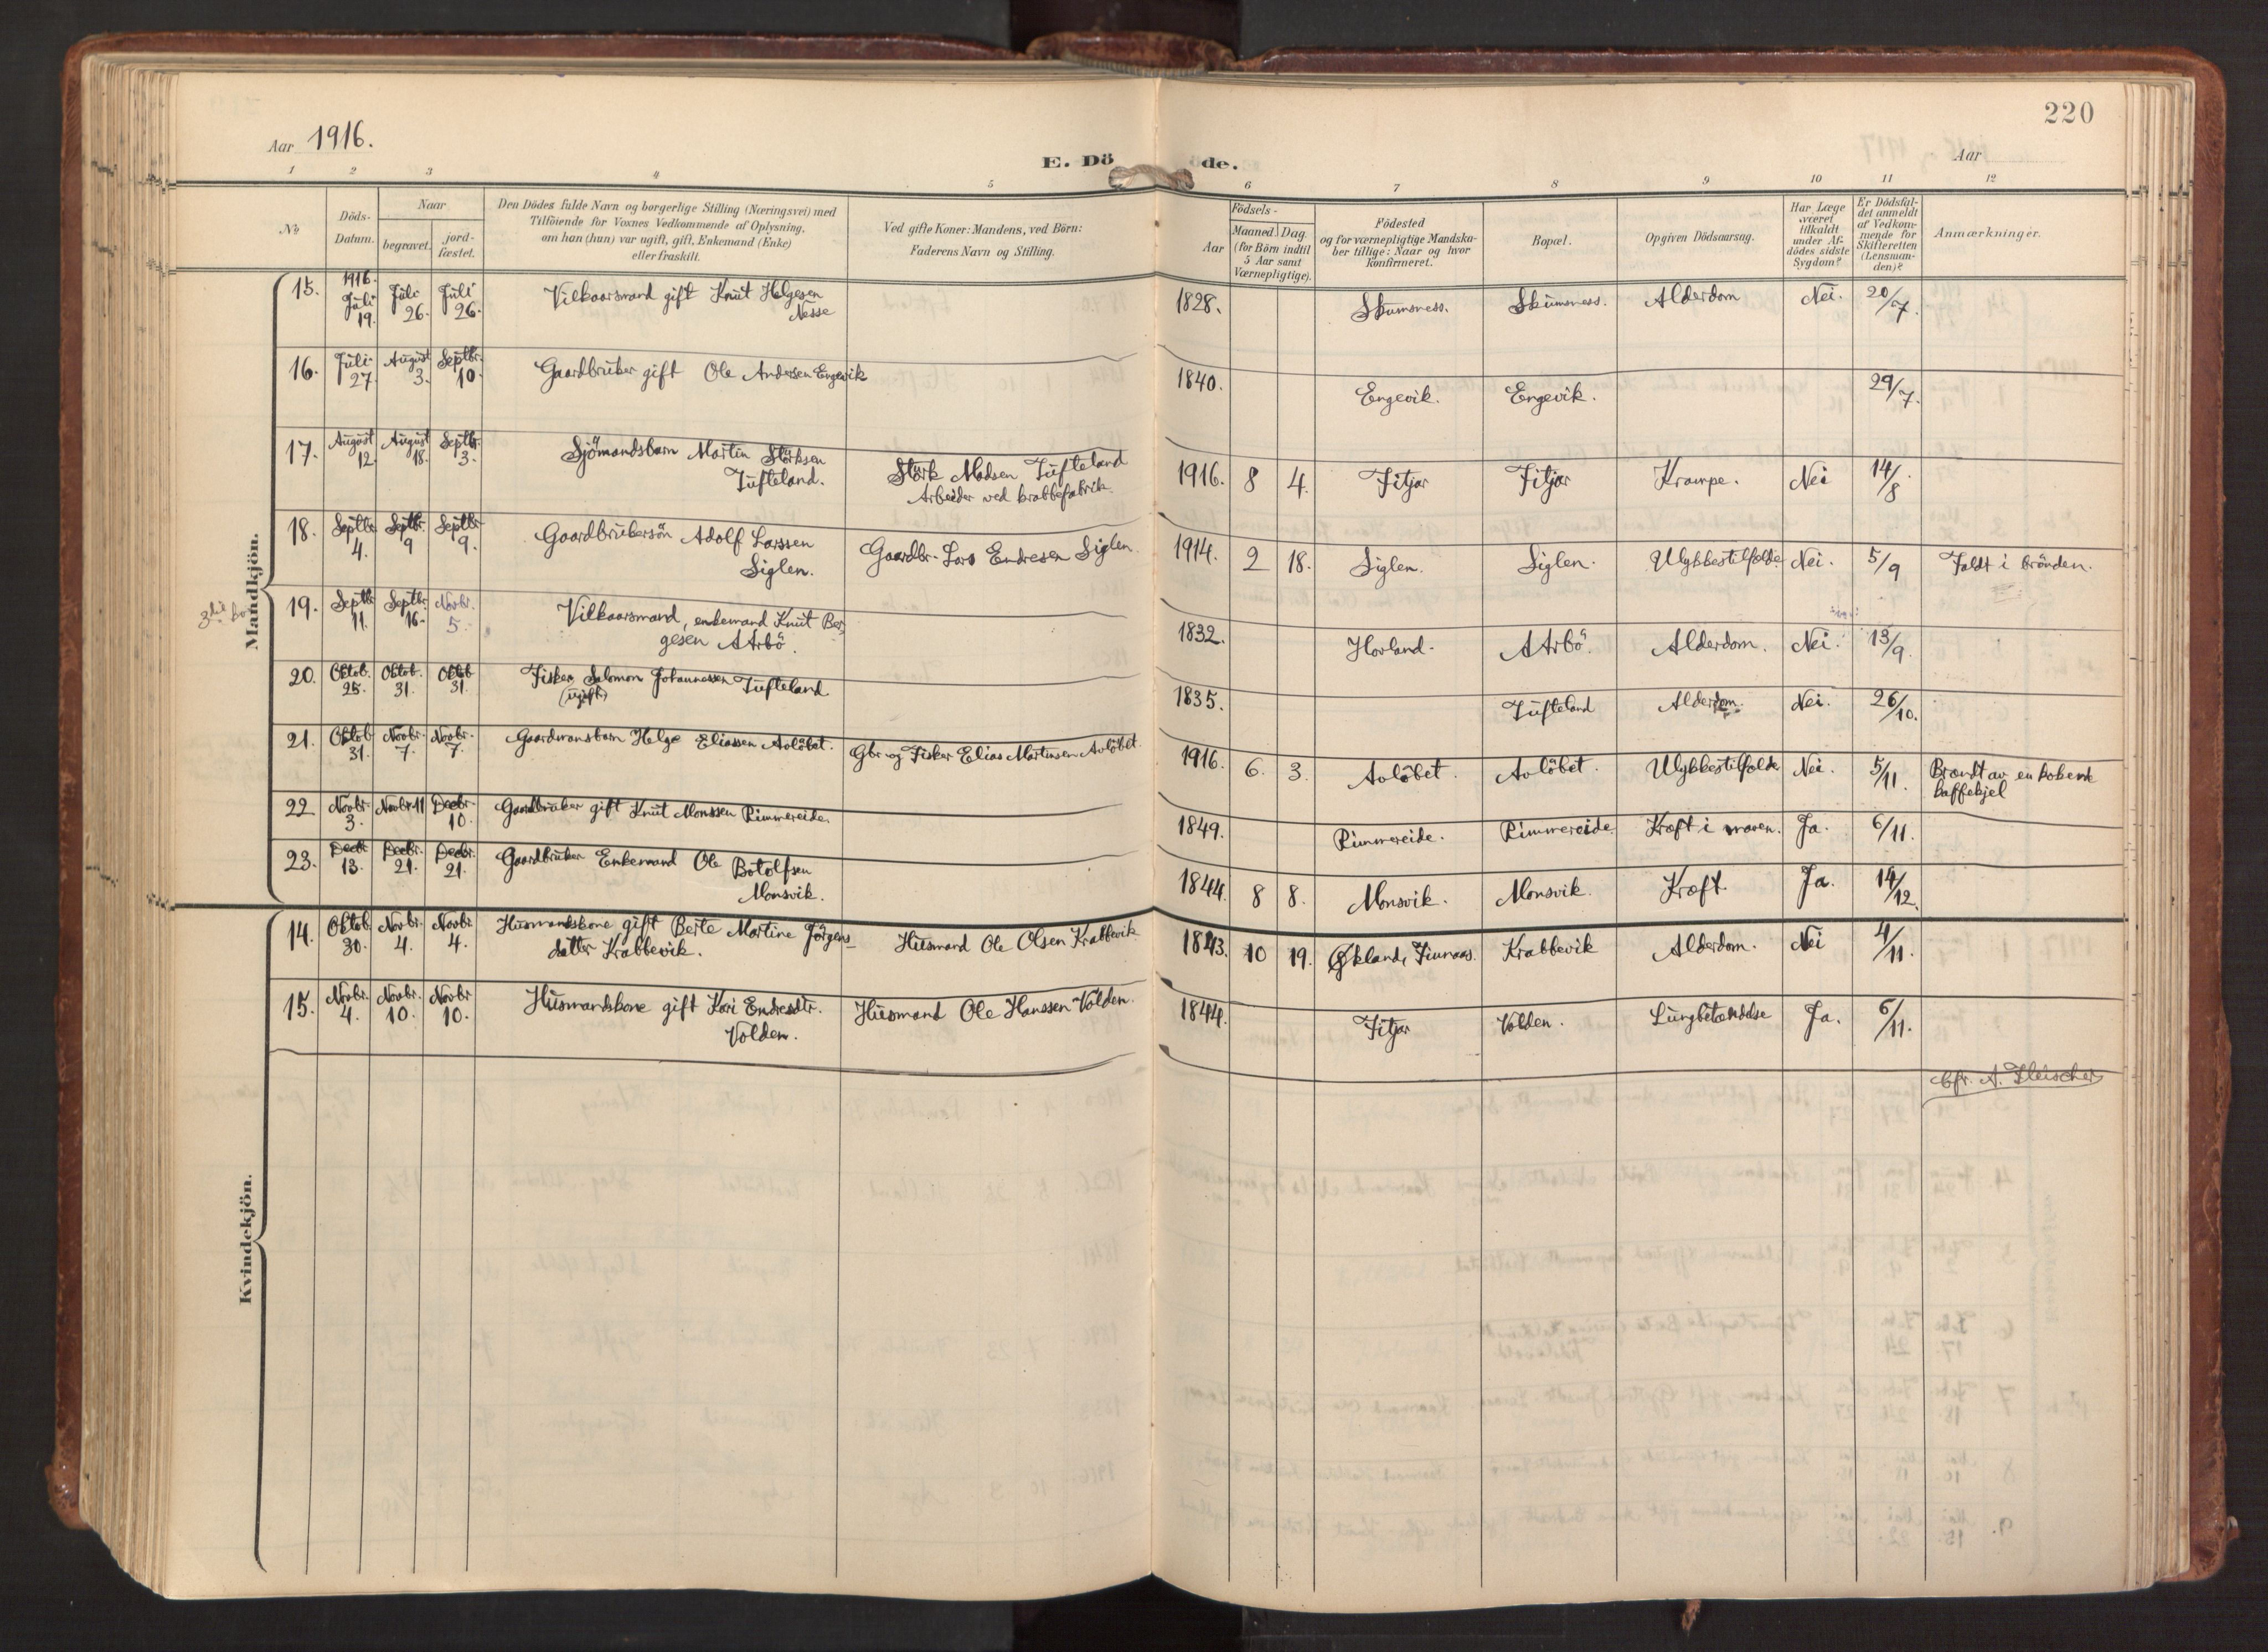 Aar 1916.
E. Döde.
220
Aar
1 2 3 4 5 6 7 8 9 10 11 12
№
Döds-Datum.
Naar
begravet.
jord-fæstet.
Den Dödes fulde Navn og borgerlige Stilling (Næringsvei) med
Tilföiende for Voxnes Vedkommende af Oplysning,
om han (hun) var ugift, gift, Enkemand (Enke)
eller fraskilt.
Ved gifte Koner: Mandens, ved Börn:
Faderens Navn og Stilling.
Födsels-
Aar
Maaned. Dag.
(for Börn indtil
5 Aar samt
Værnepligtige).
Födested
og for værnepligtige Mandska-
ber tillige: Naar og hvor
konfirmeret.
Bopæl.
Opgiven Dödsaarsag.
Har Læge
været
tilkaldt
under Af-
dödes sidste
Sygdom?
Er Dödsfal-
det anmeldt
af Vedkom-
mende for
Skifteretten
(Lensman-
den)?
Anmærkninger.
Mandkjön.
15. 1916. Juli 19. Juli 26. Juli 26. Vilkaarsmand gift Knut Helgesen Nesse 1828. Skumsness. Skumsness. Alderdom Nei. 20/7.
16. Juli 27. August 3. Septbr. 10. Gaardbruker gift Ole Andersen Engevik 1840. Engevik. Engevik. 29/7.
17. August 12. August 18. Septbr. 3. Sjömandsbarn Martin Störksen Tufteland. Störk Madsen Tufteland Arbeider ved krabbefabrik. 1916. 8 4. Fitjar Fitjar Krampe. Nei 14/8.
18. Septbr 4. Septbr. 9 Septbr 9. Gaardbrukersön Adolf Larssen Siglen. Gaardbr. Lars Endresen Siglen. 1914. 2 18. Siglen. Siglen. Ulykkestilfælde Nei. 5/9 Faldt i brönden.
19. Septbr 11. Septbr. 16. Novbr. 5. Vilkaarsmand, enkemand Knut Ber-
gesen Aarbö. 1832. Hovland. Aarbö. Alderdom. Nei. 13/9.
20. Oktob. 25. Oktob. 31. Oktob 31. Fisker Salomon Johannessen Tufteland
(ugift) 1835. Tufteland Alderdom. Nei. 26/10.
21. Oktob 31. Novbr. 7. Novbr. 7. Gaardmansbarn Helge Eliassen Avlöbet. Gbr. og Fisker Elias Martinsen Avlöbet. 1916. 6. 3. Avlöbet. Avlöbet. Ulykkestilfælde Nei. 5/11. Brændt av en kokende
kaffekjel
22 Novbr. 3. Novbr 11 Decbr. 10. Gaardbruker gift Knut Monssen Rimmereide. 1849. Rimmereide. Rimmereide. Kræft i maven. Ja. 6/11.
23. Decbr 13. Decbr. 21. Decbr. 21. Gaardbruker Enkemand Ole Botolfsen
Monsvik. 1844. 8 8. Monsvik. Monsvik. Kræft. Ja. 14/12.
Kvindekjön.
14. Oktob 30. Novbr. 4. Novbr 4. Husmandskone gift Berte Martine Jörgens-
datter Krabbevik. Husmand Ole Olsen Krabbevik 1843. 10 19. Økland, Finnaas. Krabbevik Alderdom. Nei 4/11.
15. Novbr. 4. Novbr. 10. Novbr 10. Husmandskone gift Kari Endresdtr.
Volden. Husmand Ole Hanssen Volden. 1844. Fitjar Volden. Lungbetændelse Ja. 6/11.
Cfr. A. Fleischer